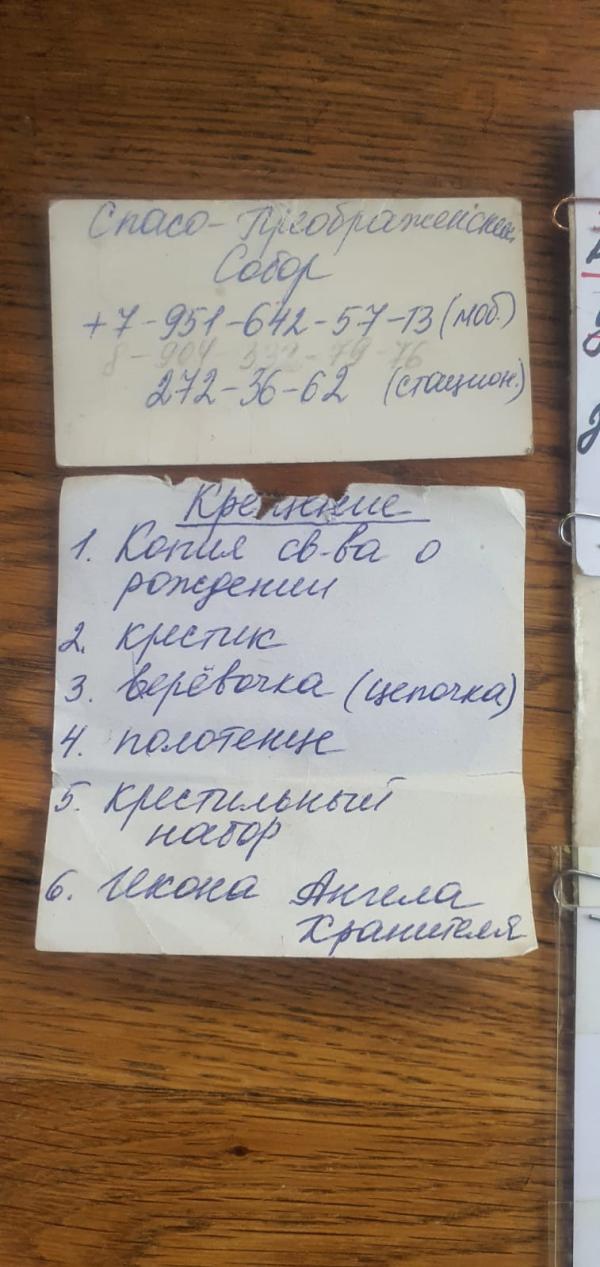 Спасо-Преображенский
Собор
+7-951-642-57-13 (моб.)
8-904-332-79-76
272-36-62 (стацион.)
Крещение
1. Копия св-ва о
рождении
2. крестик
3. верёвочка (цепочка)
4. полотенце
5. крестильный
набор
6. Икона Ангела
Хранителя